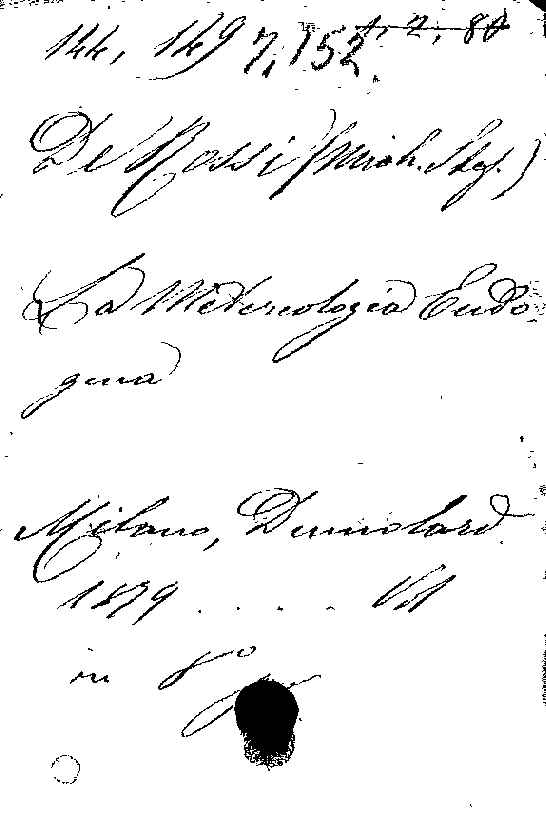 144, 149 7,152
De Rossi (Mich. Stef.)
La Metereologia Endo
gena
Milano, Dumolard
1879 . . . . Vol
in 8°